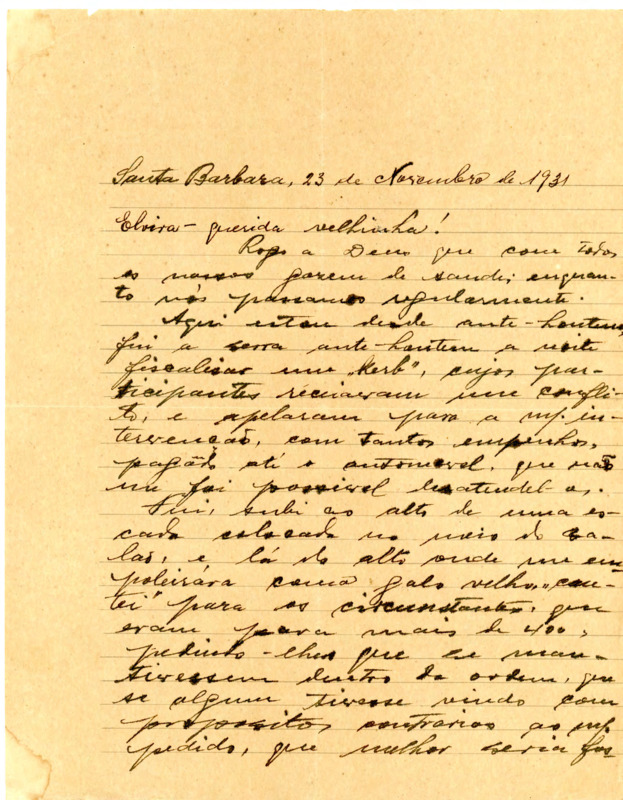 Santa Barbara, 23 de Novembro de 1931
Elvira - querida velhinha!
Rogo a Deus que com todos
os nossos gozem de saude; enquan-
to nós passamos regularmente.
Aqui estou desde ante-hontem,
fui a serra ante-hontem a noite
fiscalisar um „Kerb", cujos par-
ticipantes receiavam um confli-
to, e apelaram para a mf in-
tervenção, com tantos empenhos,
pagãdo até o automovel, que não
me foi possivel desatendel-os.
Fui, subi ao alto de uma es-
cada colocada no meio do sa-
lão, e lá do alto onde me em-
poleirára como galo velho, „can-
tei" para os circunstantes, que
eram para mais de 400,
pedindo-lhes que se man-
tivessem dentro da ordem, que
se algum tivesse vindo com
propositos contrarios ao mf
pedido, que melhor seria fos-